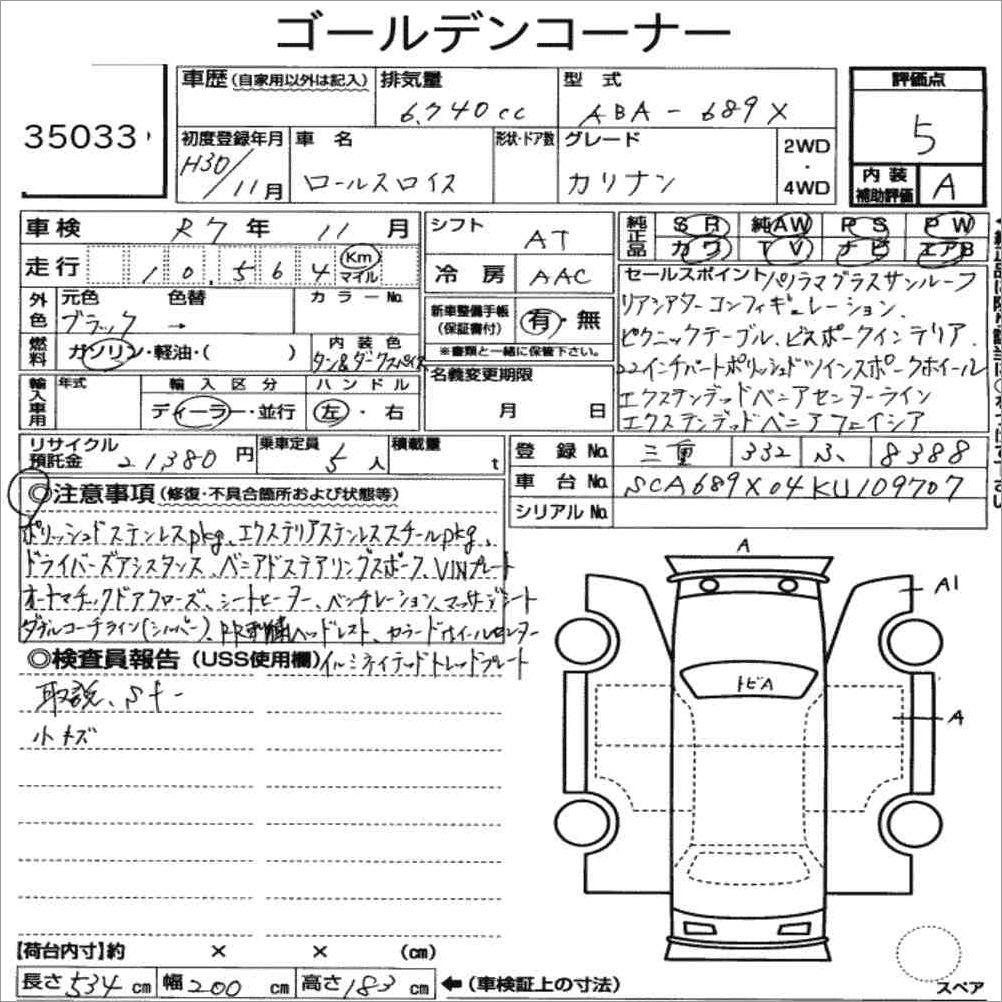 ゴールデンコーナー
35033
車歴(自家用以外は記入)
排気量 6,740cc
型式 ABA-689X
評価点 5
初度登録年月 H30/11月
車名 ロールスロイス
形状・ドア数
グレード カリナン
2WD・4WD
内装補助評価 A
車検 R7年 11月
シフト AT
純正品 SR 純AW PS PW
カワ TV ナビ エアB
走行 10,564 Km マイル
冷房 AAC
セールスポイント パノラマグラスサンルーフ
リアシアターコンフィギュレーション、
ピクニックテーブル、ビスポークインテリア、
22インチパートポリッシュドツインスポークホイール
エクステンデッドベニアセンターライン
エクステンデッドベニアフェイシア
外色 元色 ブラック → 色替 カラーNo.
新車整備手帳(保証書付) 有・無
※書類と一緒に保管下さい。
燃料 ガソリン・軽油・( )
内装色 タン&ダークスパイス
名義変更期限 月 日
輸入車用 年式
輸入区分 ディーラー・並行
ハンドル 左・右
リサイクル預託金 21,380円
乗車定員 5人
積載量 t
登録No. 三重 332 ふ 8388
車台No. SCA689X04KU109707
シリアルNo.
◎注意事項(修復・不具合箇所および状態等)
ポリッシュドステンレスpkg、エクステリアステンレススチールpkg、
ドライバーズアシスタンス、ベニアドステアリングスポーク、VINプレート
オートマチックドアクローズ、シートヒーター、ベンチレーション、マッサージシート
ダブルコーチライン(シルバー)、RR刺繍ヘッドレスト、カラードホイールセンター
イルミネイテッドトレッドプレート
◎検査員報告(USS使用欄)
取説、Sキー
小キズ
A
A1
トビA
A
【荷台内寸】約 × × (cm)
長さ534cm 幅200cm 高さ183cm ←(車検証上の寸法)
スペア